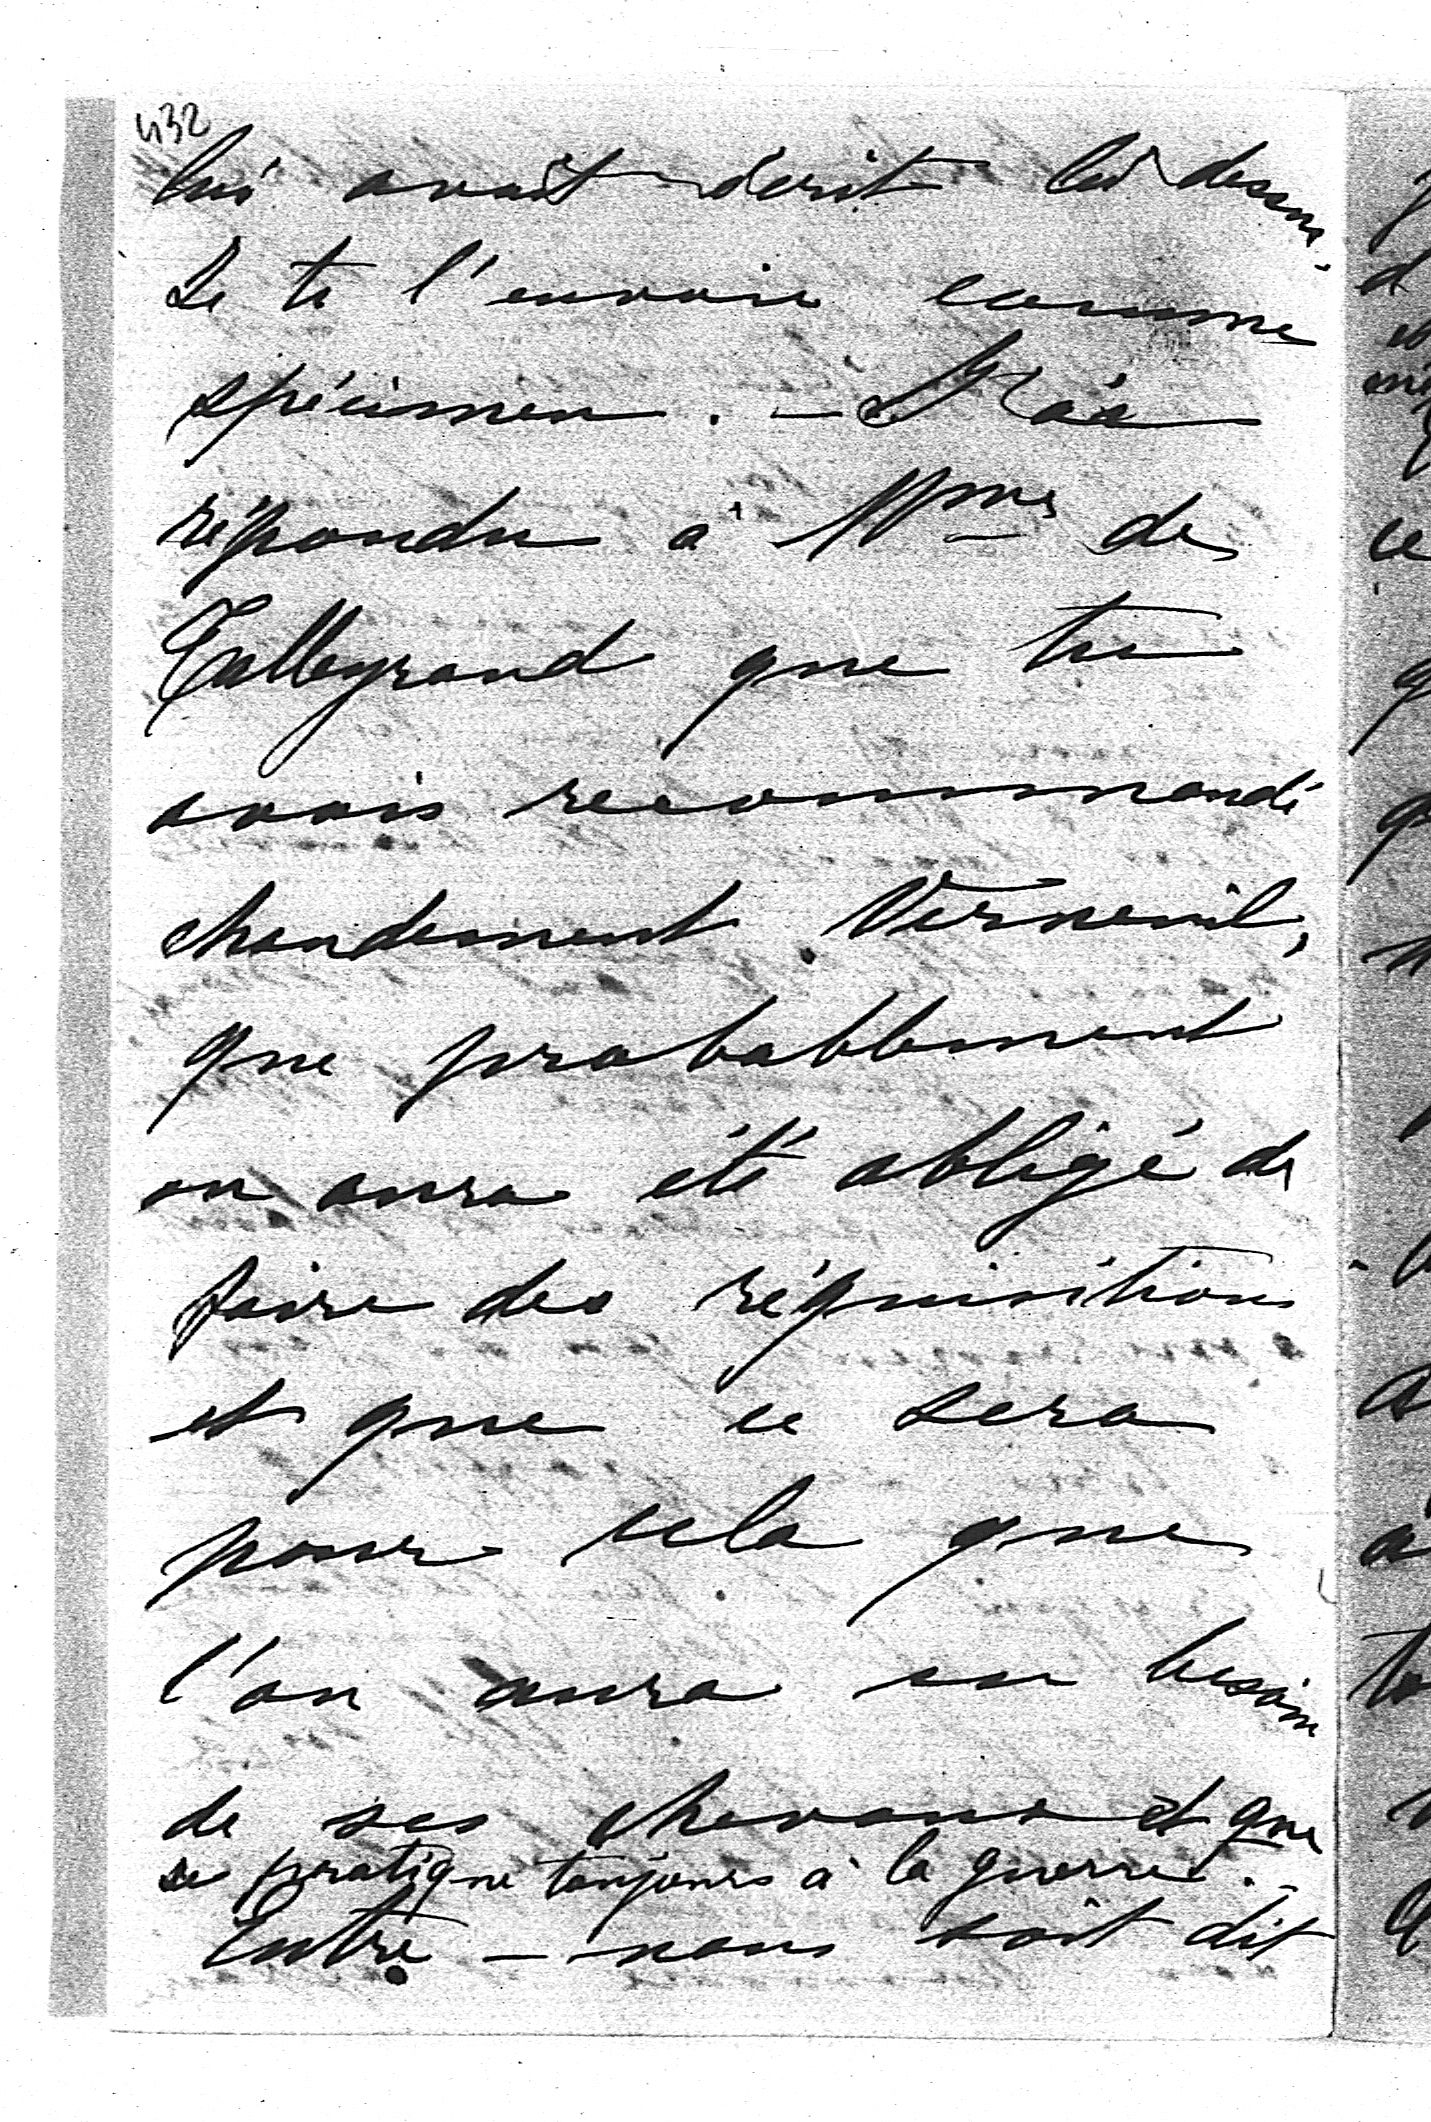 432
lui avait écrit là dessus.
Je te l'envoie comme
spécimen. — J'ai
répondu à Mme de
Talleyrand que tu
avais recommandé
chaudement Verneuil,
que probablement
on aura été obligé de
faire des réquisitions
et que ce sera
pour cela que
l'on aura eu besoin
de ses chevaux et que
se pratique toujours à la guerre. —
Entre - nous soit dit